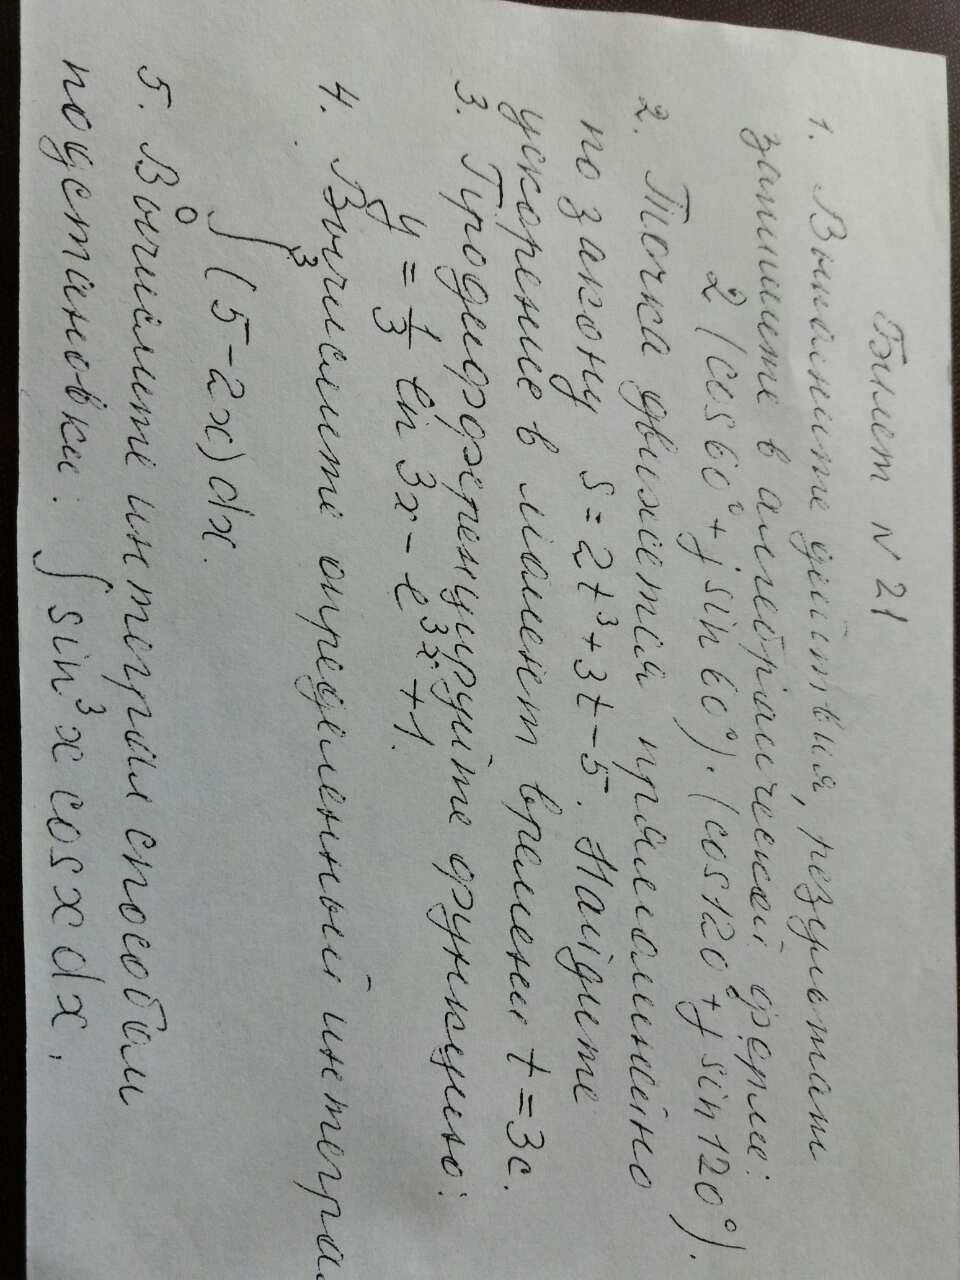 Билет № 21
1. Выполните действия, результат
запишите в алгебраической форме:
2 (cos 60° + j sin 60°) · (cos 120° + j sin 120°).
2. Точка движется прямолинейно
по закону s = 2t³ + 3t - 5. Найдите
ускорение в момент времени t = 3c.
3. Продифференцируйте функцию:
y = 1/3 ln 3x - e³ˣ + 1.
4. Вычислите определенный интеграл
∫ (5 - 2x) dx.
0
5. Вычислите интеграл способом
подстановки: ∫ sin³ x cos x dx.